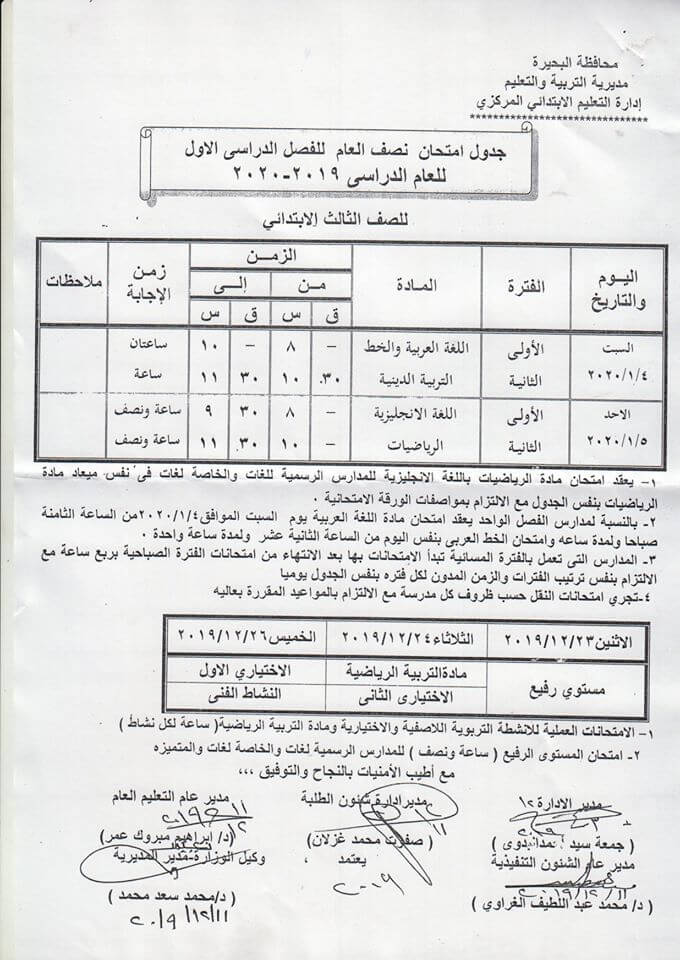 محافظة البحيرة
مديرية التربية والتعليم
إدارة التعليم الابتدائي المركزي
******************************
جدول امتحان نصف العام للفصل الدراسى الاول
للعام الدراسى ٢٠١٩-٢٠٢٠
للصف الثالث الابتدائي
اليوم والتاريخ الفترة المادة الزمن زمن الإجابة ملاحظات
من إلى
ق س ق س
السبت الأولى اللغة العربية والخط – ٨ – ١٠ ساعتان
٢٠٢٠/١/٤ الثانية التربية الدينية ٣٠. ١٠ ٣٠ ١١ ساعة
الاحد الأولى اللغة الانجليزية – ٨ ٣٠ ٩ ساعة ونصف
٢٠٢٠/١/٥ الثانية الرياضيات – ١٠ ٣٠ ١١ ساعة ونصف
١- يعقد امتحان مادة الرياضيات باللغة الانجليزية للمدارس الرسمية للغات والخاصة لغات فى نفس ميعاد مادة
الرياضيات بنفس الجدول مع الالتزام بمواصفات الورقة الامتحانية ٠
٢- بالنسبة لمدارس الفصل الواحد يعقد امتحان مادة اللغة العربية يوم السبت الموافق٢٠٢٠/١/٤من الساعة الثامنة
صباحا ولمدة ساعه وامتحان الخط العربى بنفس اليوم من الساعة الثانية عشر ولمدة ساعة واحدة ٠
٣- المدارس التى تعمل بالفترة المسائية تبدأ الامتحانات بها بعد الانتهاء من امتحانات الفترة الصباحية بربع ساعة مع
الالتزام بنفس ترتيب الفترات والزمن المدون لكل فتره بنفس الجدول يوميا
٤-تجري امتحانات النقل حسب ظروف كل مدرسة مع الالتزام بالمواعيد المقررة بعاليه
الاثنين٢٠١٩/١٢/٢٣ الثلاثاء٢٠١٩/١٢/٢٤ الخميس٢٠١٩/١٢/٢٦
مستوي رفيع مادةالتربية الرياضية الاختياري الاول
الاختيارى الثانى النشاط الفنى
١- الامتحانات العملية للانشطة التربوية اللاصفية والاختيارية ومادة التربية الرياضية( ساعة لكل نشاط )
٢- امتحان المستوى الرفيع ( ساعة ونصف ) للمدارس الرسمية لغات والخاصة لغات والمتميزه
مع أطيب الأمنيات بالنجاح والتوفيق ،،،
مدير الادارة مديرادارة شئون الطلبة مدير عام التعليم العام
( جمعة سيد ( صفوت محمد غزلان ) (د/ إبراهيم مبروك عمر )
مدير عام الشئون التنفيذية يعتمد ، وكيل الوزارة-مدير المديرية
٢٠١٩/١٢/١١ ٢٠١٩
( د/ محمد عبد اللطيف الغراوي ) ( د/محمد سعد محمد )
٢٠١٩/١٢/١١